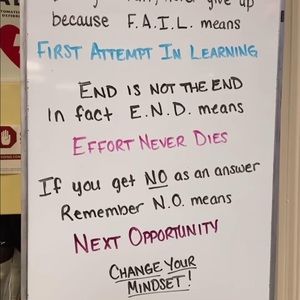 never give up
because F.A.I.L. means
FIRST ATTEMPT IN LEARNING
END IS NOT THE END
In fact E.N.D. means
EFFORT NEVER DIES
If you get NO as an answer
Remember N.O. means
NEXT OPPORTUNITY
CHANGE YOUR
MINDSET!